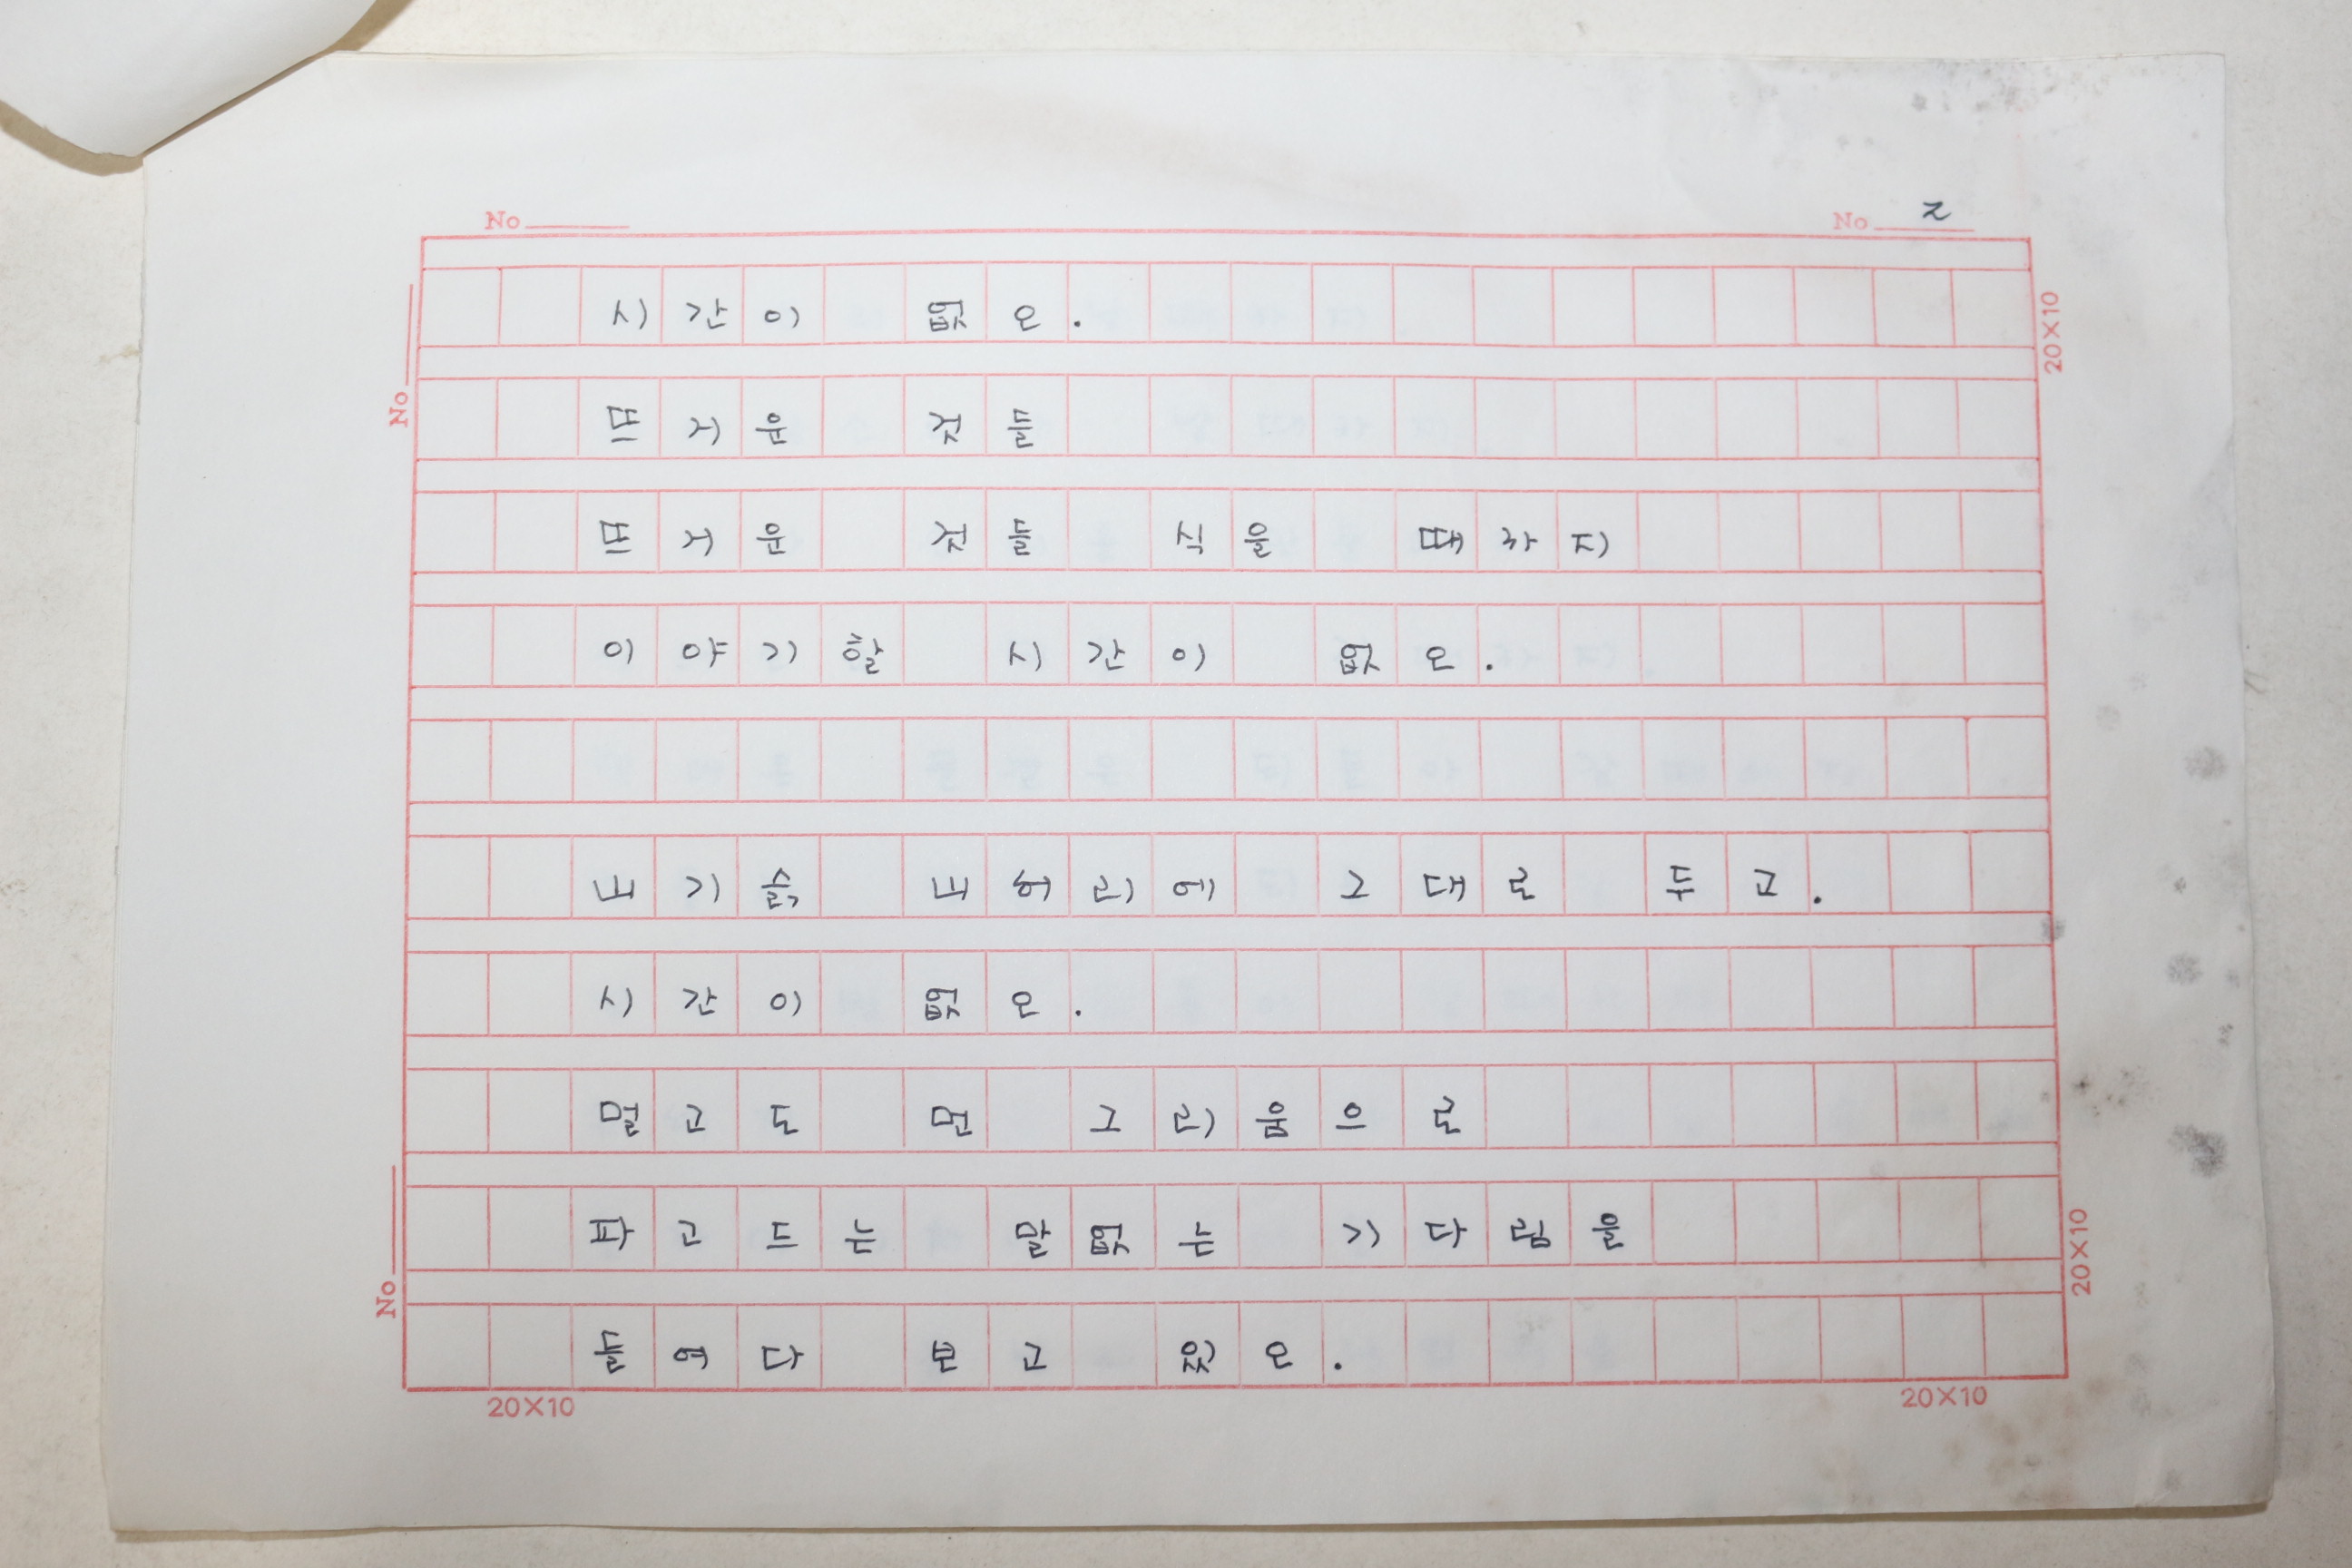 No No 2
20×10
시간이 없오.
뜨거운 것들
No
뜨거운 것들 식을 때까지
이야기할 시간이 없오.
네기슭 네허리에 그대로 두고.
시간이 없오.
멀고도 먼 그리움으로
파고드는 말없는 기다림을
20×10
No
들여다 보고 있오.
20×10 20×10